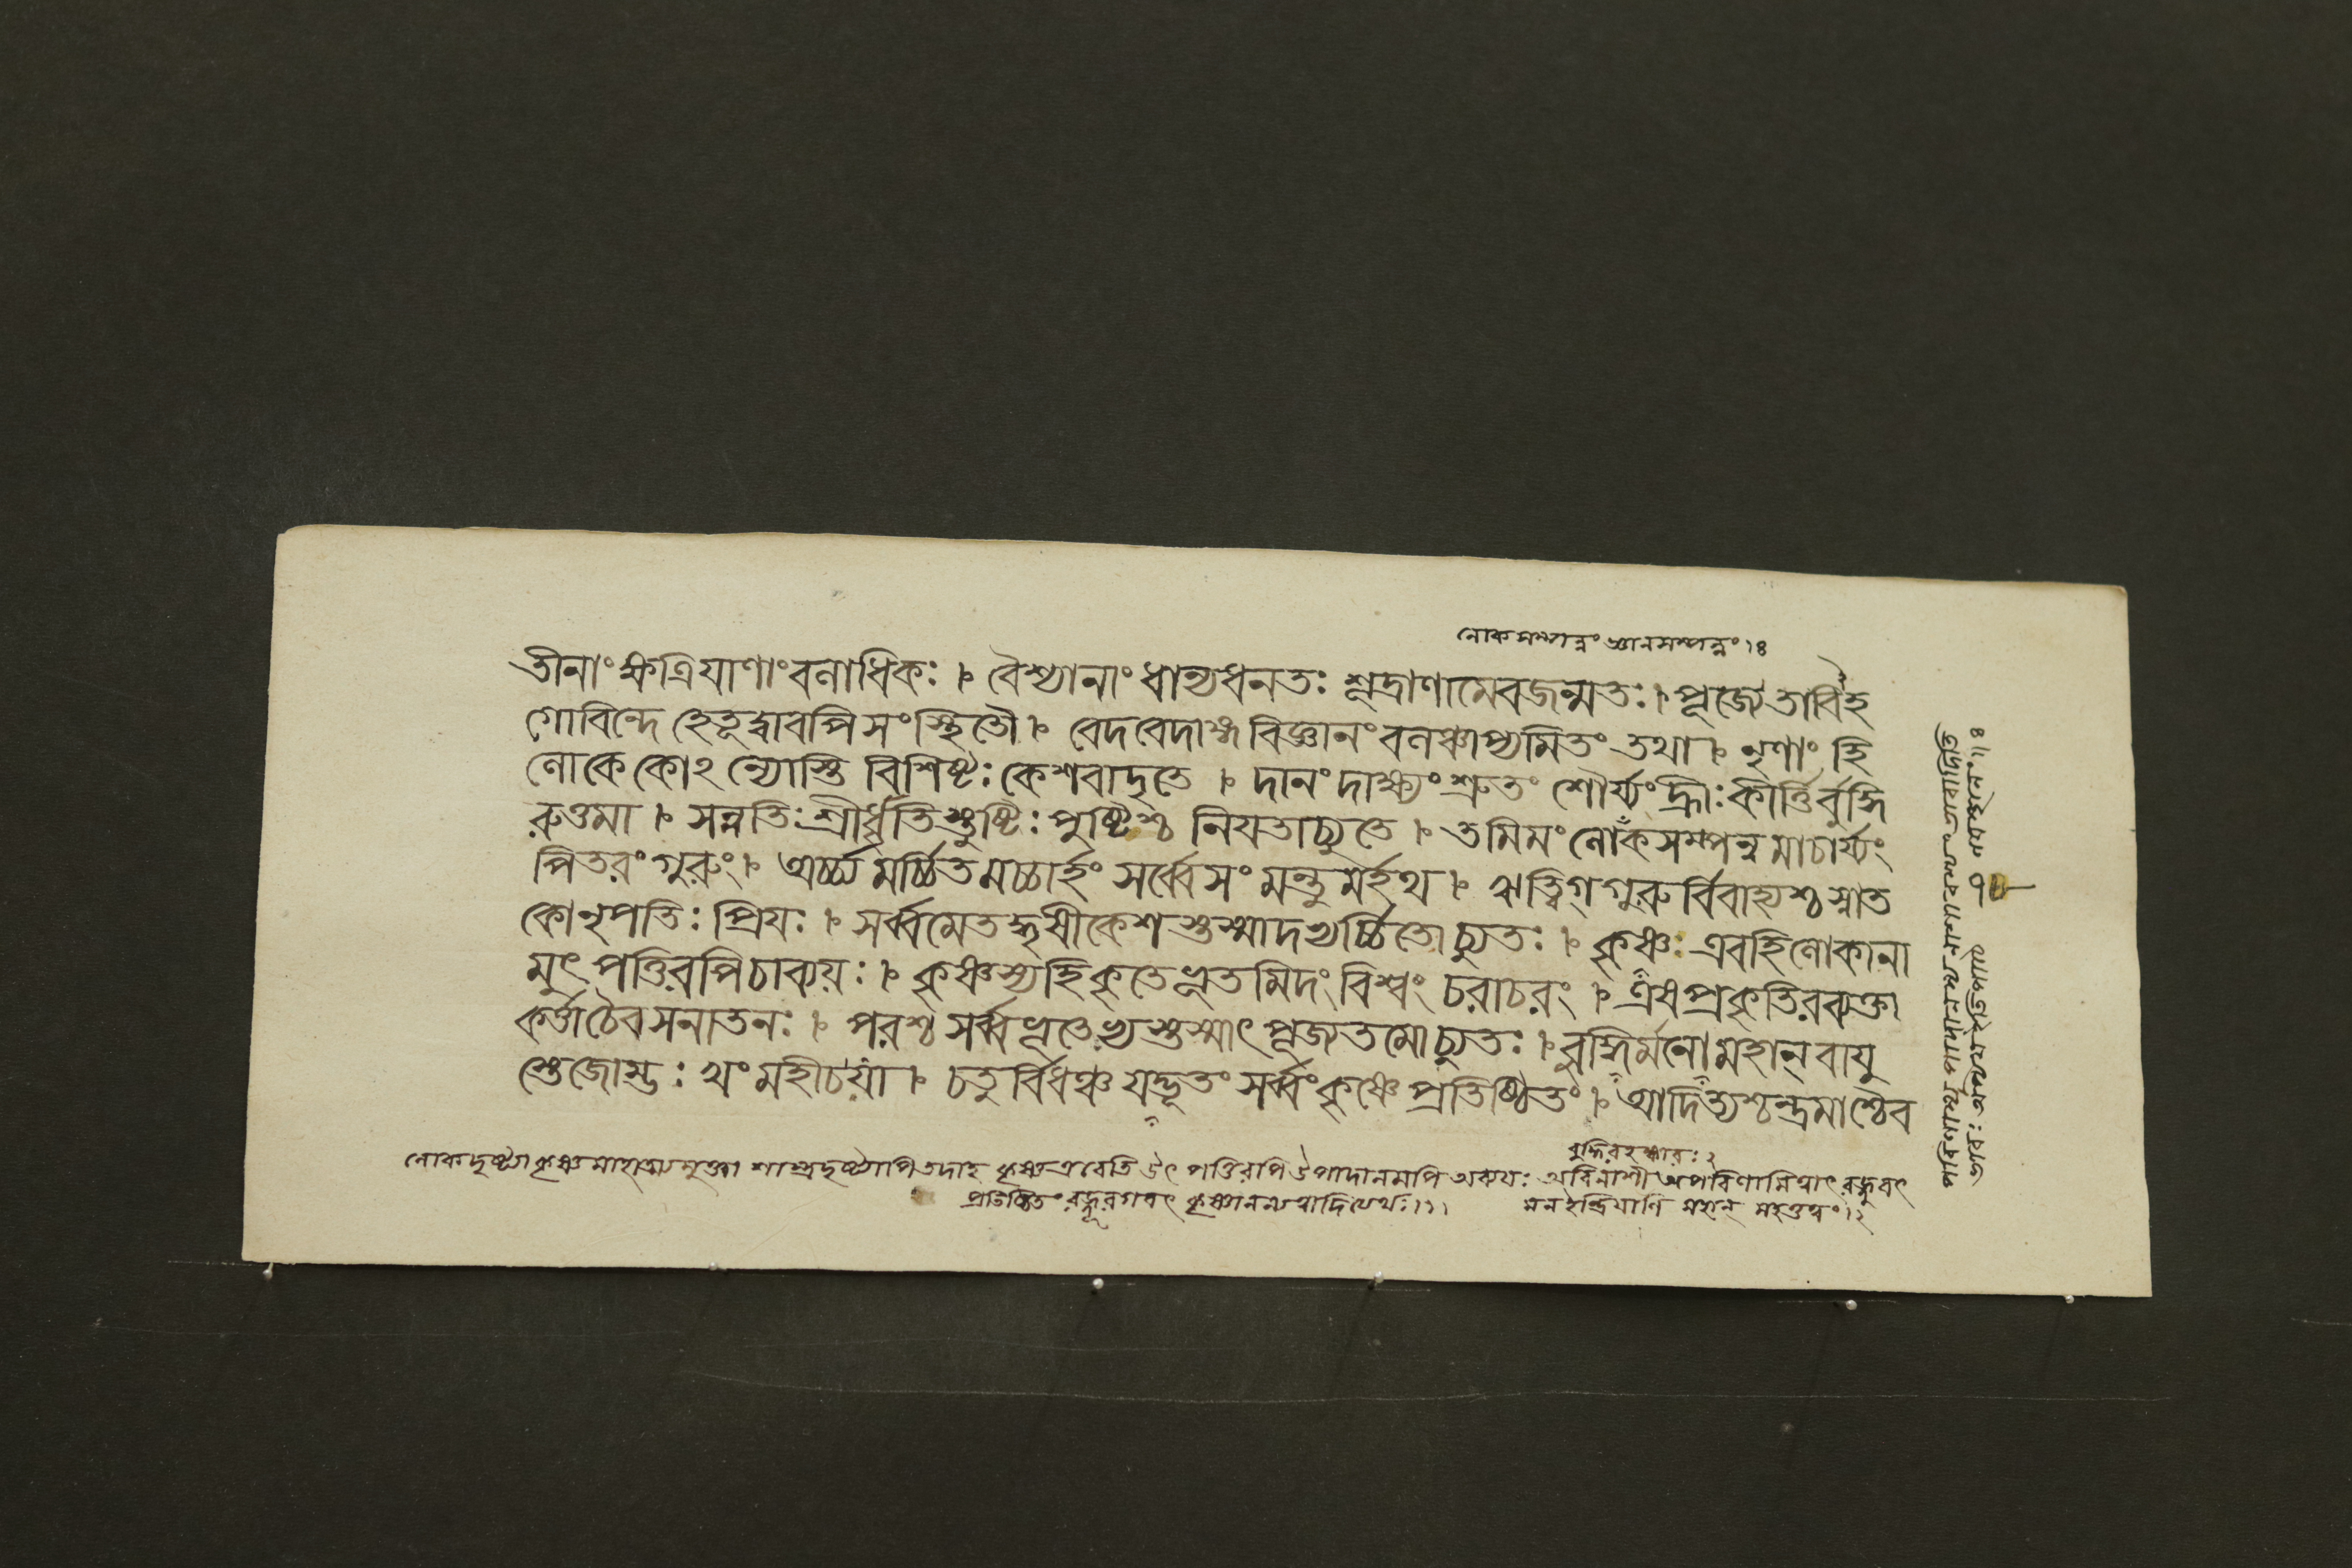 লোকসম্পন্নং জ্ঞানসম্পন্নং।৪
তীনাং ক্ষত্রিযাণাং বলাধিকঃ। বৈশ্যানাং ধান্যধনতঃ শূদ্রাণামেব জন্মতঃ। পূজ্যেতাবিহ
গোবিন্দে হেতূ দ্বাবপি সংস্থিতৌ। বেদবেদাঙ্গবিজ্ঞানং বলঞ্চাপ্যমিতং তথা। নৃণাং হি
লোকে কোঽন্যোস্তি বিশিষ্টঃ কেশবাদৃতে। দানং দাক্ষ্যং শ্রুতং শৌর্য্যং হ্রীঃ কীর্ত্তির্বুদ্ধি
রুত্তমা। সন্নতিঃ শ্রীর্ধৃতিস্তুষ্টিঃ পুষ্টিশ্চ নিযতাচ্যুতে। তমিমং লোকসম্পন্নমাচার্য্যং
পিতরং গুরুং। অর্চ্চ্যমর্চ্চিতমর্চ্চার্হং সর্ব্বে সংমন্তুমর্হথ। ঋত্বিগ্ গুরুর্বিবাহ্যশ্চ স্নাত
কো নৃপতিঃ প্রিযঃ। সর্ব্বমেতদ্ধৃষীকেশস্তস্মাদভ্যর্চ্চিতোচ্যুতঃ। কৃষ্ণঃ এব হি লোকানা
মুৎপত্তিরপি চাব্যয়ঃ। কৃষ্ণস্য হি কৃতে ভূতমিদং বিশ্বং চরাচরং। এষ প্রকৃতিরব্যক্তা
কর্ত্তা চৈব সনাতনঃ। পরশ্চ সর্ব্বভূতেভ্যস্তস্মাৎ পূজ্যতমোচ্যুতঃ। বুদ্ধির্মনো মহান্ বাযু
স্তেজোম্ভঃ খং মহী চ যা। চতুর্বিধঞ্চ যদ্ভূতং সর্ব্বং কৃষ্ণে প্রতিষ্ঠিতং। আদিত্যশ্চন্দ্রমাশ্চৈব
বুদ্ধিরহঙ্কারঃ ২
লোকদৃষ্ট্যা কৃষ্ণমাহাত্ম্যমুক্ত্বা শাস্ত্রদৃষ্ট্যাপি তদাহ কৃষ্ণ এবেতি উৎপত্তিরপি উপাদানমপি অব্যযঃ অবিনাশী অপরিণামিত্বাৎ রজ্জুবৎ
প্রতিষ্ঠিতং রজ্জূরগবৎ কৃষ্ণানন্যত্বাদিত্যর্থঃ।১। মন ইন্দ্রিযাণি মহান্ মহত্তত্বং।২